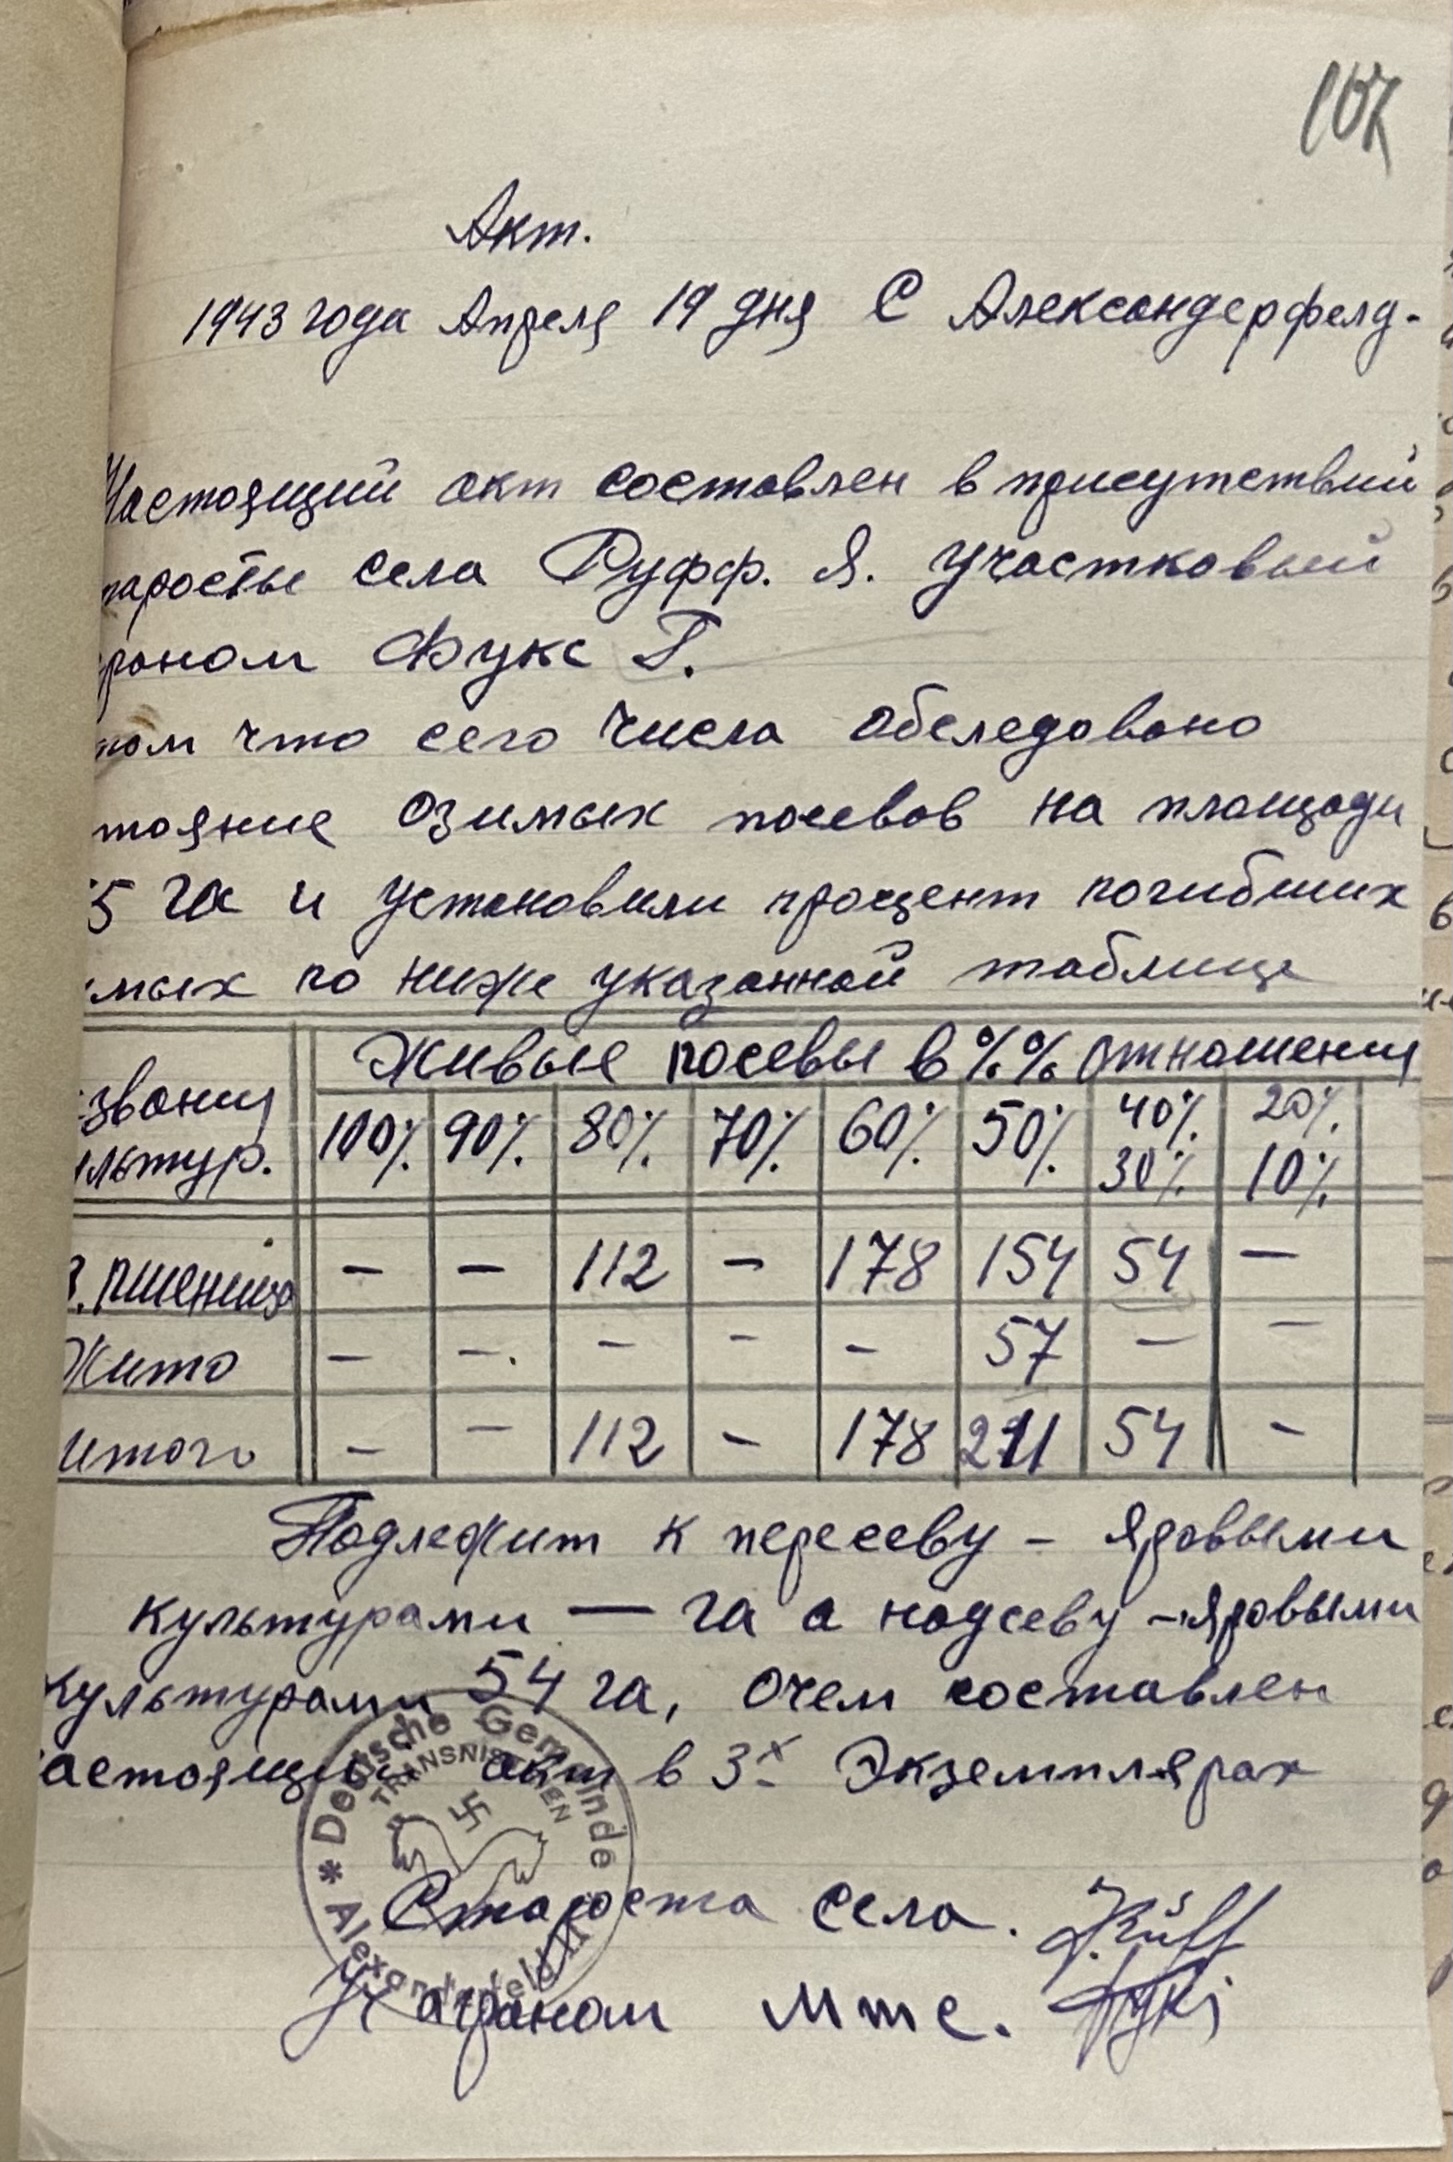 107
Акт.
1943 года Апреля 19 дня С Александерфелд.
Настоящий акт составлен в присутствии
таросты села Руфф. Я. участковый
роном Фукс Г.
том что сего числа обследовано
тояние озимых посевов на площади
5 га и установили процент погибших
мых по ниже указанной таблице
звания Живые посевы в %% отношении
льтур. 100% 90% 80% 70% 60% 50% 40% 30% 20% 10%
з. пшеница — — 112 — 178 154 54 —
Жито — — — — — 57 — —
итого — — 112 — 178 211 54 —
Подлежит к пересеву – яровыми
культурами — га а подсеву – яровыми
культурами 54 га, очем составлен
астоящий акт в 3х Экземплярах
* Deutsche Gemeinde
TRANSNISTRIEN
Alexanderfeld II
Староста села. J. Rüff
Уч агроном Мтс.